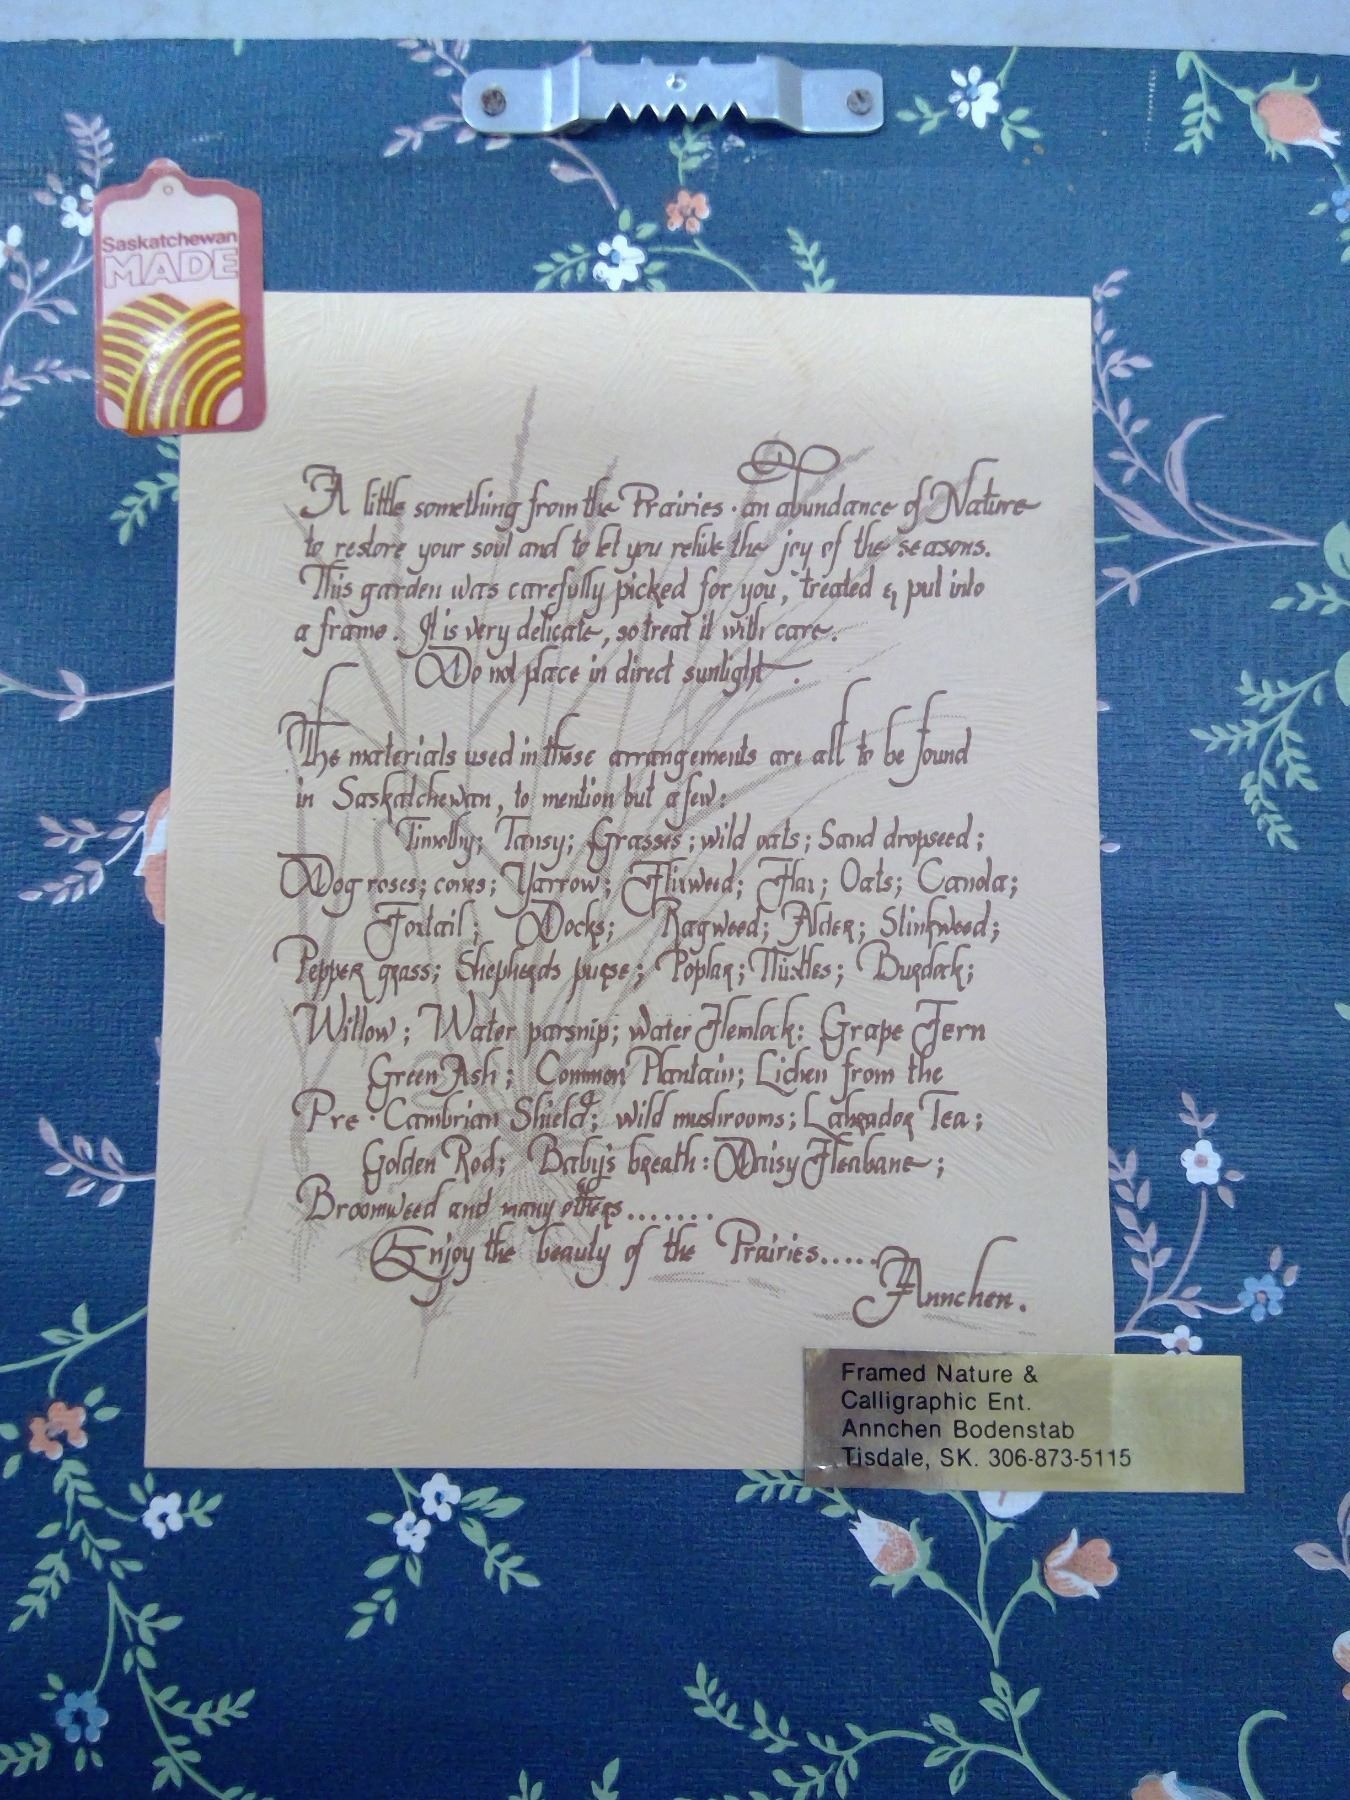 Saskatchewan
MADE
A little something from the Prairies · an abundance of Nature
to restore your soul and to let you relive the joy of the seasons.
This garden was carefully picked for you, treated & put into
a frame. It is very delicate, so treat it with care.
Do not place in direct sunlight.
The materials used in these arrangements are all to be found
in Saskatchewan, to mention but a few:
Timothy; Tansy; Grasses; wild oats; Sand dropseed;
Dog roses; cones; Yarrow; Flixweed; Flax; Oats; Canola;
Foxtail; Docks; Ragweed; Alder; Stinkweed;
Pepper grass; Shepherds purse; Poplar; Thistles; Burdock;
Willow; Water parsnip; water Hemlock: Grape Fern
Green Ash; Common Plantain; Lichen from the
Pre·Cambrian Shield; wild mushrooms; Labrador Tea;
Golden Rod; Baby's breath: Daisy Fleabane;
Broomweed and many others.......
Enjoy the beauty of the Prairies.....
Annchen.
Framed Nature &
Calligraphic Ent.
Annchen Bodenstab
Tisdale, SK. 306-873-5115